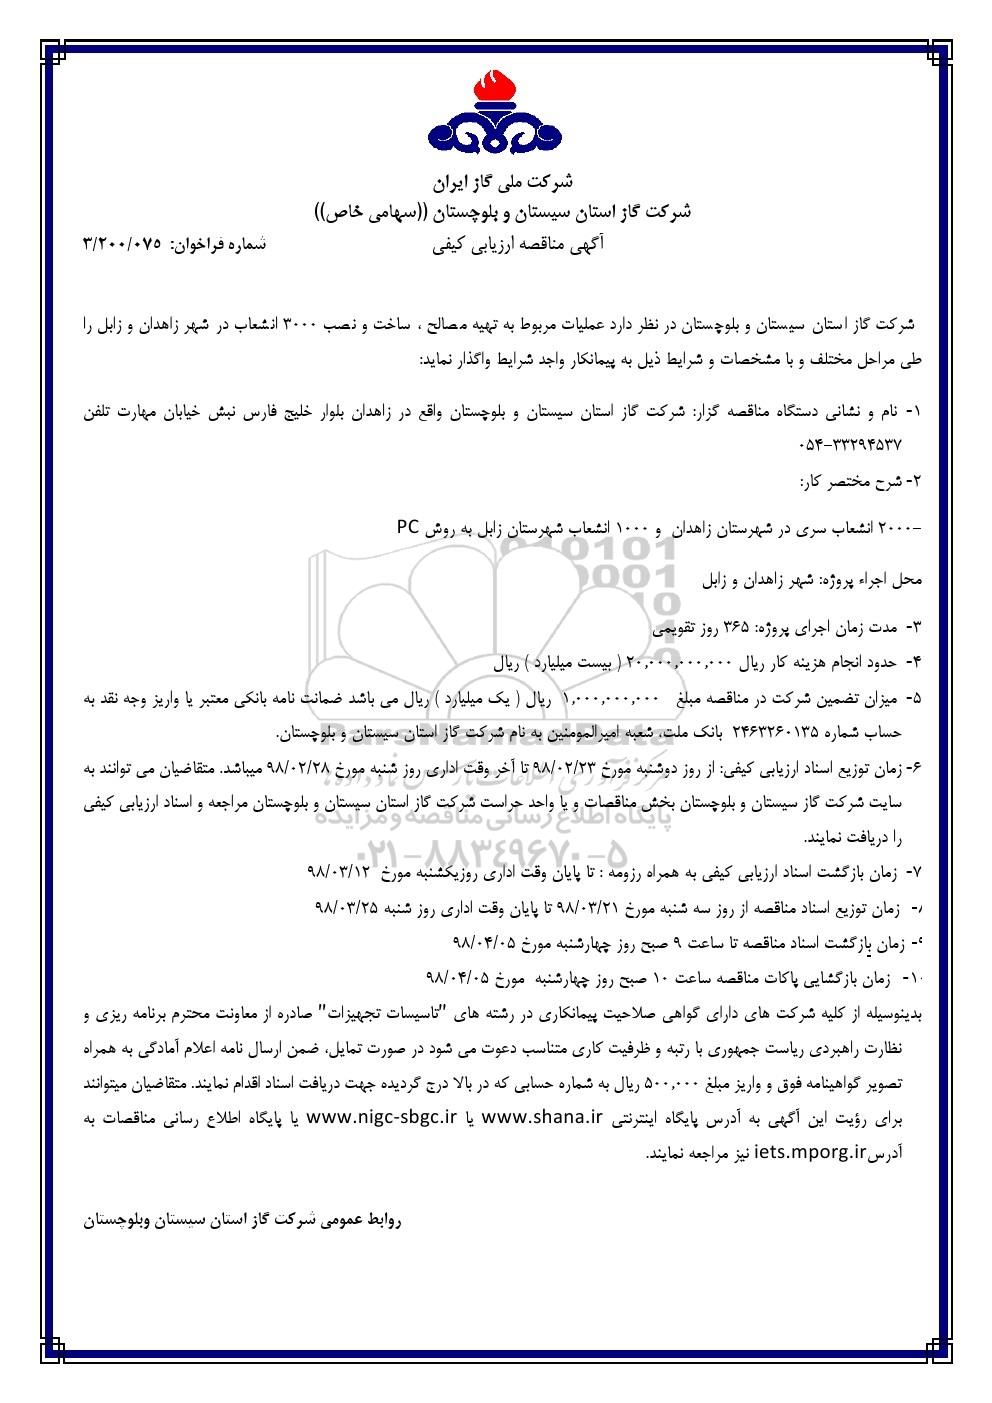 شرکت ملی گاز ایران
شرکت گاز استان سیستان و بلوچستان ((سهامی خاص))
آگهی مناقصه ارزیابی کیفی
شماره فراخوان: ۳/۲۰۰/۰۷۵
شرکت گاز استان سیستان و بلوچستان در نظر دارد عملیات مربوط به تهیه مصالح ، ساخت و نصب ۳۰۰۰ انشعاب در شهر زاهدان و زابل را
طی مراحل مختلف و با مشخصات و شرایط ذیل به پیمانکار واجد شرایط واگذار نماید:
۱- نام و نشانی دستگاه مناقصه گزار: شرکت گاز استان سیستان و بلوچستان واقع در زاهدان بلوار خلیج فارس نبش خیابان مهارت تلفن
۰۵۴-۳۳۲۹۴۵۳۷
۲- شرح مختصر کار:
-۲۰۰۰ انشعاب سری در شهرستان زاهدان و ۱۰۰۰ انشعاب شهرستان زابل به روش PC
محل اجراء پروژه: شهر زاهدان و زابل
۳- مدت زمان اجرای پروژه: ۳۶۵ روز تقویمی
۴- حدود انجام هزینه کار ریال ۲۰,۰۰۰,۰۰۰,۰۰۰ ( بیست میلیارد ) ریال
۵- میزان تضمین شرکت در مناقصه مبلغ ۱,۰۰۰,۰۰۰,۰۰۰ ریال ( یک میلیارد ) ریال می باشد ضمانت نامه بانکی معتبر یا واریز وجه نقد به
حساب شماره ۲۴۶۳۲۶۰۱۳۵ بانک ملت، شعبه امیرالمومنین به نام شرکت گاز استان سیستان و بلوچستان.
۶- زمان توزیع اسناد ارزیابی کیفی: از روز دوشنبه مورخ ۹۸/۰۲/۲۳ تا آخر وقت اداری روز شنبه مورخ ۹۸/۰۲/۲۸ میباشد. متقاضیان می توانند به
سایت شرکت گاز سیستان و بلوچستان بخش مناقصات و یا واحد حراست شرکت گاز استان سیستان و بلوچستان مراجعه و اسناد ارزیابی کیفی
را دریافت نمایند.
۷- زمان بازگشت اسناد ارزیابی کیفی به همراه رزومه : تا پایان وقت اداری روزیکشنبه مورخ ۹۸/۰۳/۱۲
۸- زمان توزیع اسناد مناقصه از روز سه شنبه مورخ ۹۸/۰۳/۲۱ تا پایان وقت اداری روز شنبه ۹۸/۰۳/۲۵
۹- زمان بازگشت اسناد مناقصه تا ساعت ۹ صبح روز چهارشنبه مورخ ۹۸/۰۴/۰۵
۱۰- زمان بازگشایی پاکات مناقصه ساعت ۱۰ صبح روز چهارشنبه مورخ ۹۸/۰۴/۰۵
بدینوسیله از کلیه شرکت های دارای گواهی صلاحیت پیمانکاری در رشته های "تاسیسات تجهیزات" صادره از معاونت محترم برنامه ریزی و
نظارت راهبردی ریاست جمهوری با رتبه و ظرفیت کاری متناسب دعوت می شود در صورت تمایل، ضمن ارسال نامه اعلام آمادگی به همراه
تصویر گواهینامه فوق و واریز مبلغ ۵۰۰,۰۰۰ ریال به شماره حسابی که در بالا درج گردیده جهت دریافت اسناد اقدام نمایند. متقاضیان میتوانند
برای رؤیت این آگهی به آدرس پایگاه اینترنتی www.shana.ir یا www.nigc-sbgc.ir یا پایگاه اطلاع رسانی مناقصات به
آدرس iets.mporg.ir نیز مراجعه نمایند.
روابط عمومی شرکت گاز استان سیستان وبلوچستان
ParsNamadData
پایگاه اطلاع رسانی مناقصه و مزایده
۰۲۱-۸۸۳۴۹۶۷۰-۵